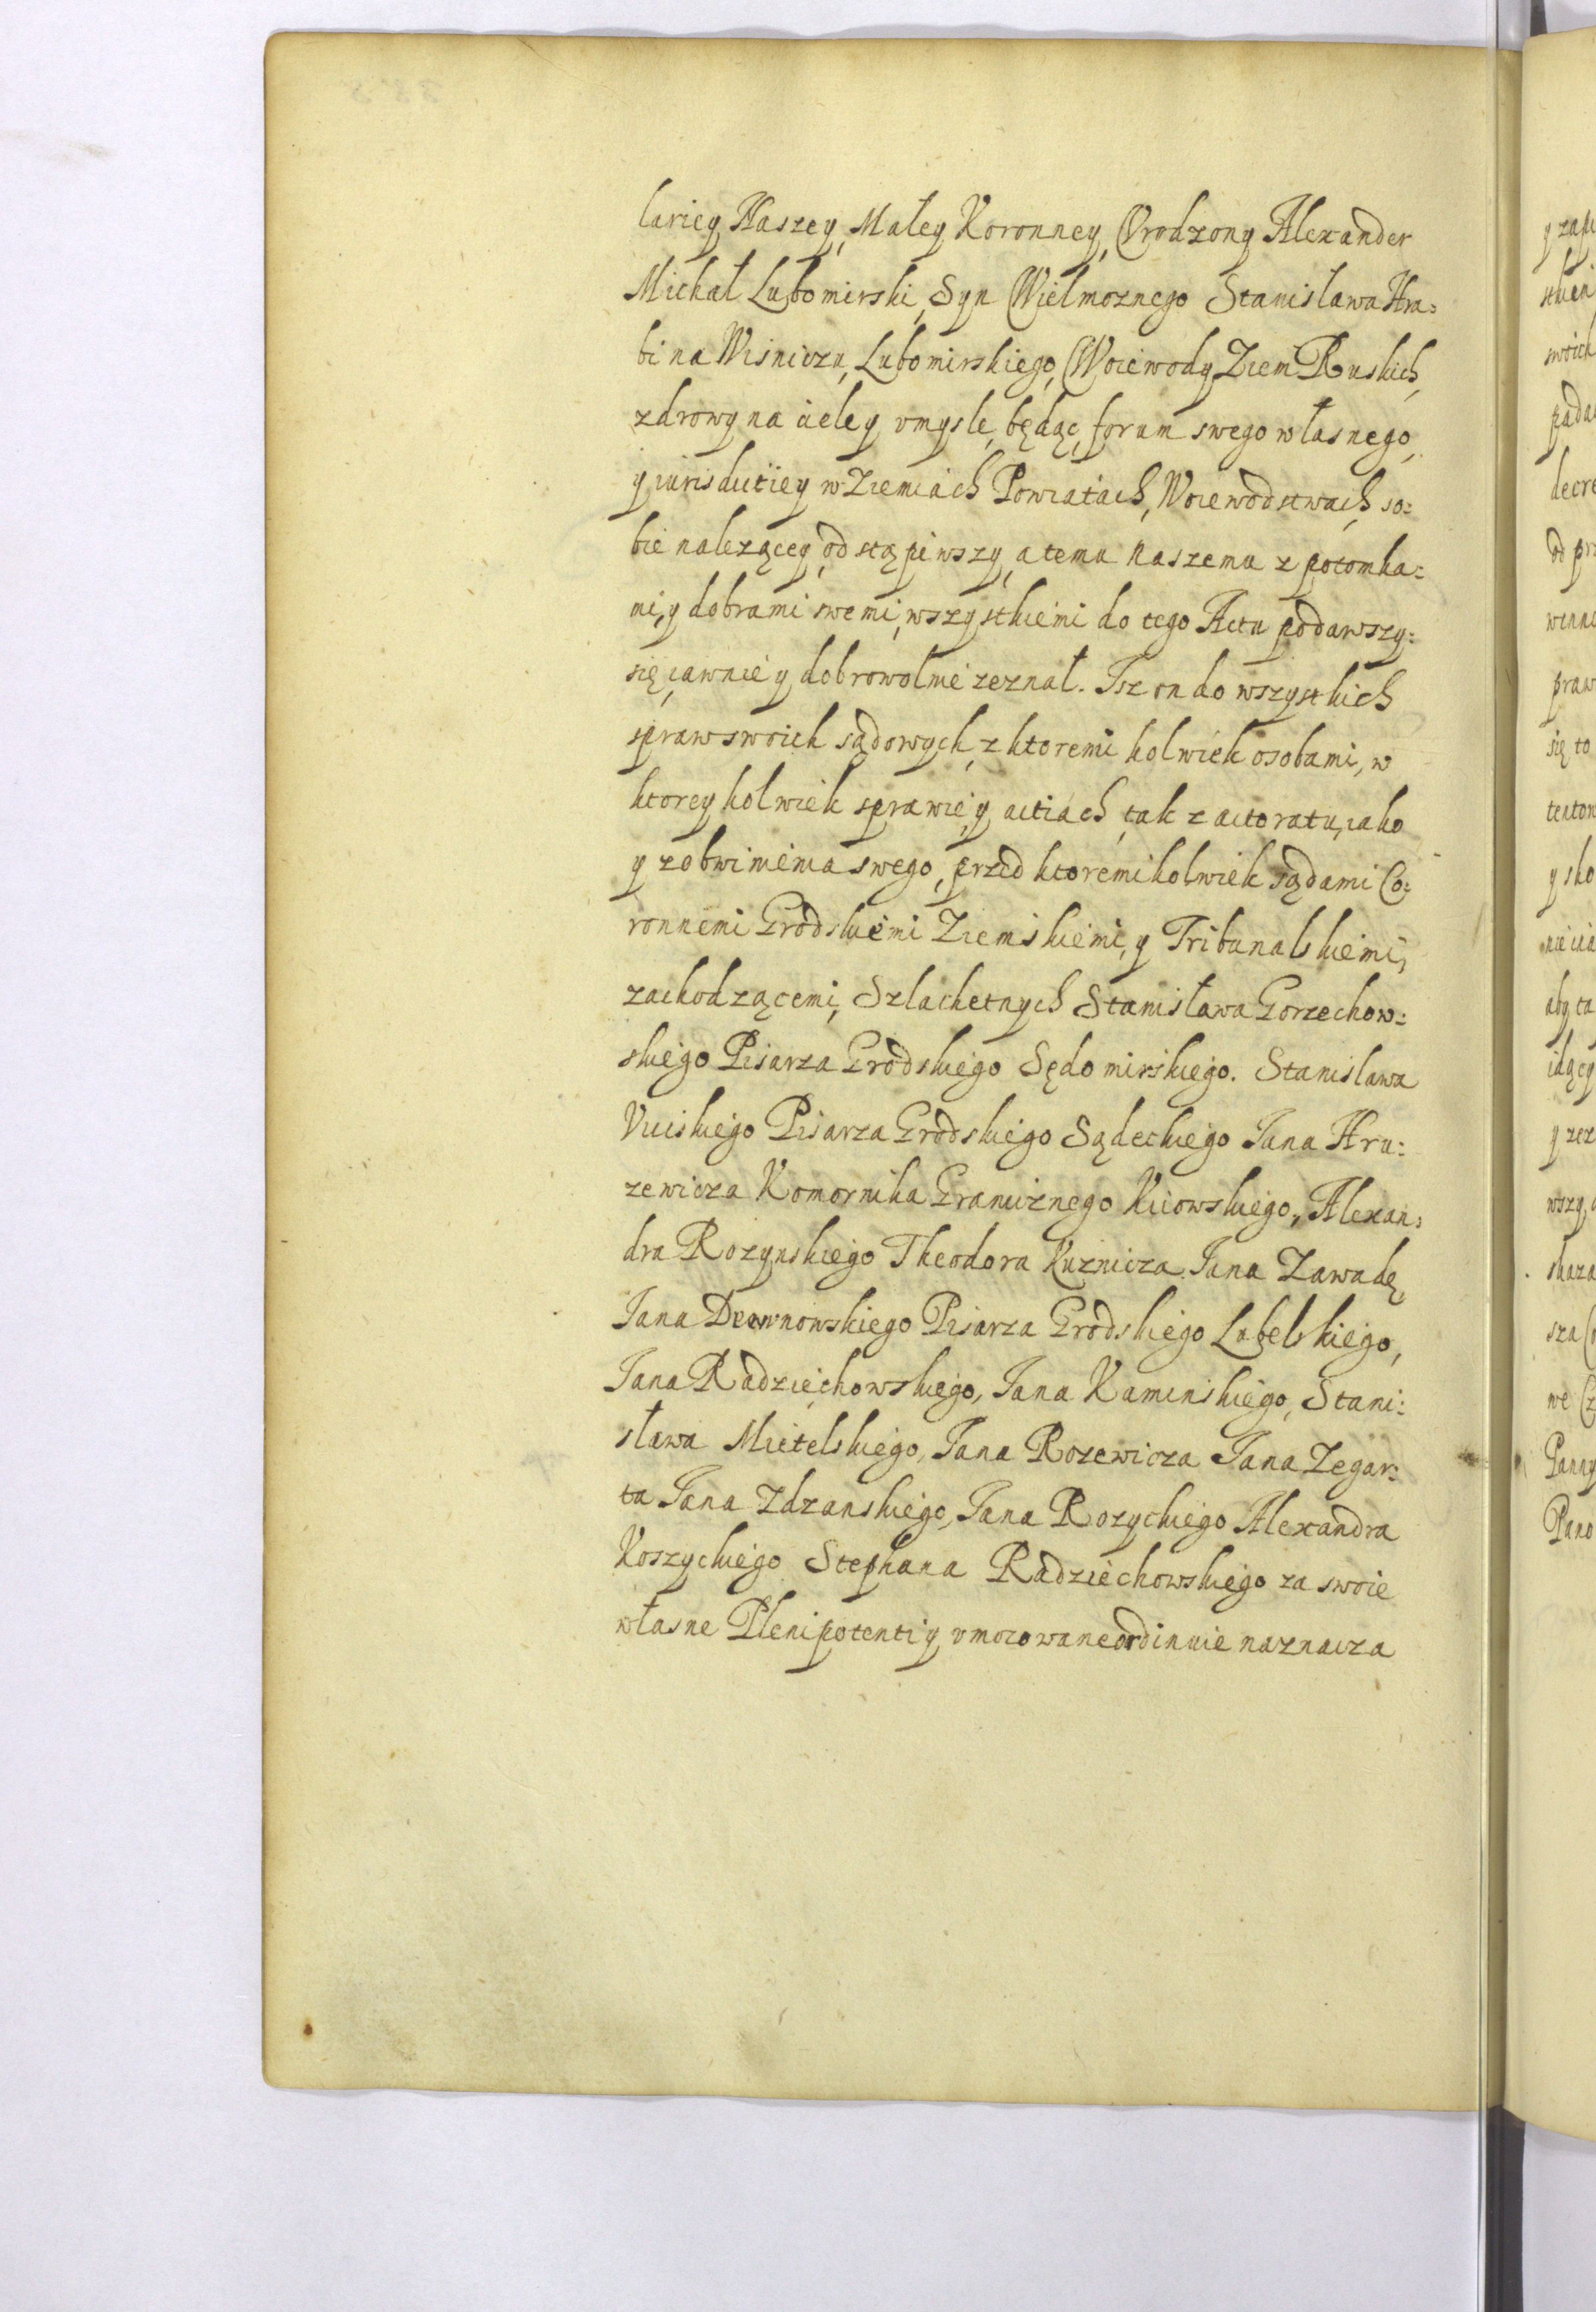 lariey Naszey, Małey Koronney, Vrodzony Alexander
Michał Lubomirski, Syn Wielmoznego Stanisława Hra:
bi na Wisniczu, Lubomirskiego, Woiewody Ziem Ruskich,
zdrowy na ciele y vmysle, będąc, forum swego własnego,
y iurisdictiey w Ziemiach Powiatach, Woiewodstwach so:
bie nalezącey, odstąpiwszy, a temu naszemu z potomka:
mi, y dobrami swemi, wszystkiemi do tego Actu podawszy:
się, iawnie y dobrowolnie zeznał. Isz on do wszystkich
spraw swoich sądowych, z ktoremi kolwiek osobami, w
ktorey kolwiek sprawie, y actiach, tak z actoratu, iako
y zobwinienia swego, przed ktoremikolwiek sądami Co:
ronnemi Grodskiemi Ziemskiemi, y Tribunalskiemi,
zachodzącemi, Szlachetnych Stanisława Gorzechow:
skiego Pisarza Grodskiego Sędomirskiego. Stanislawa
Vuiskiego Pisarza Grodskiego Sądeckiego Jana Hru:
zewicza Komornika Granicznego Kiiowskiego, Alexan:
dra Rozynskiego Theodora Kuznicza Jana Zawadę,
Jana Drewnowskiego Pisarza Grodskiego Lubelskiego,
Jana Radziechowskiego, Jana Kaminskiego, Stani:
sława Mietelskiego, Jana Rozewicza Jana Zegar:
ta Jana Zdzanskiego, Jana Rozyckiego Alexandra
Koszyckiego Stephana Radziechowskiego za swoie
własne Plenipotenti y vmocowane ordinuie naznacza